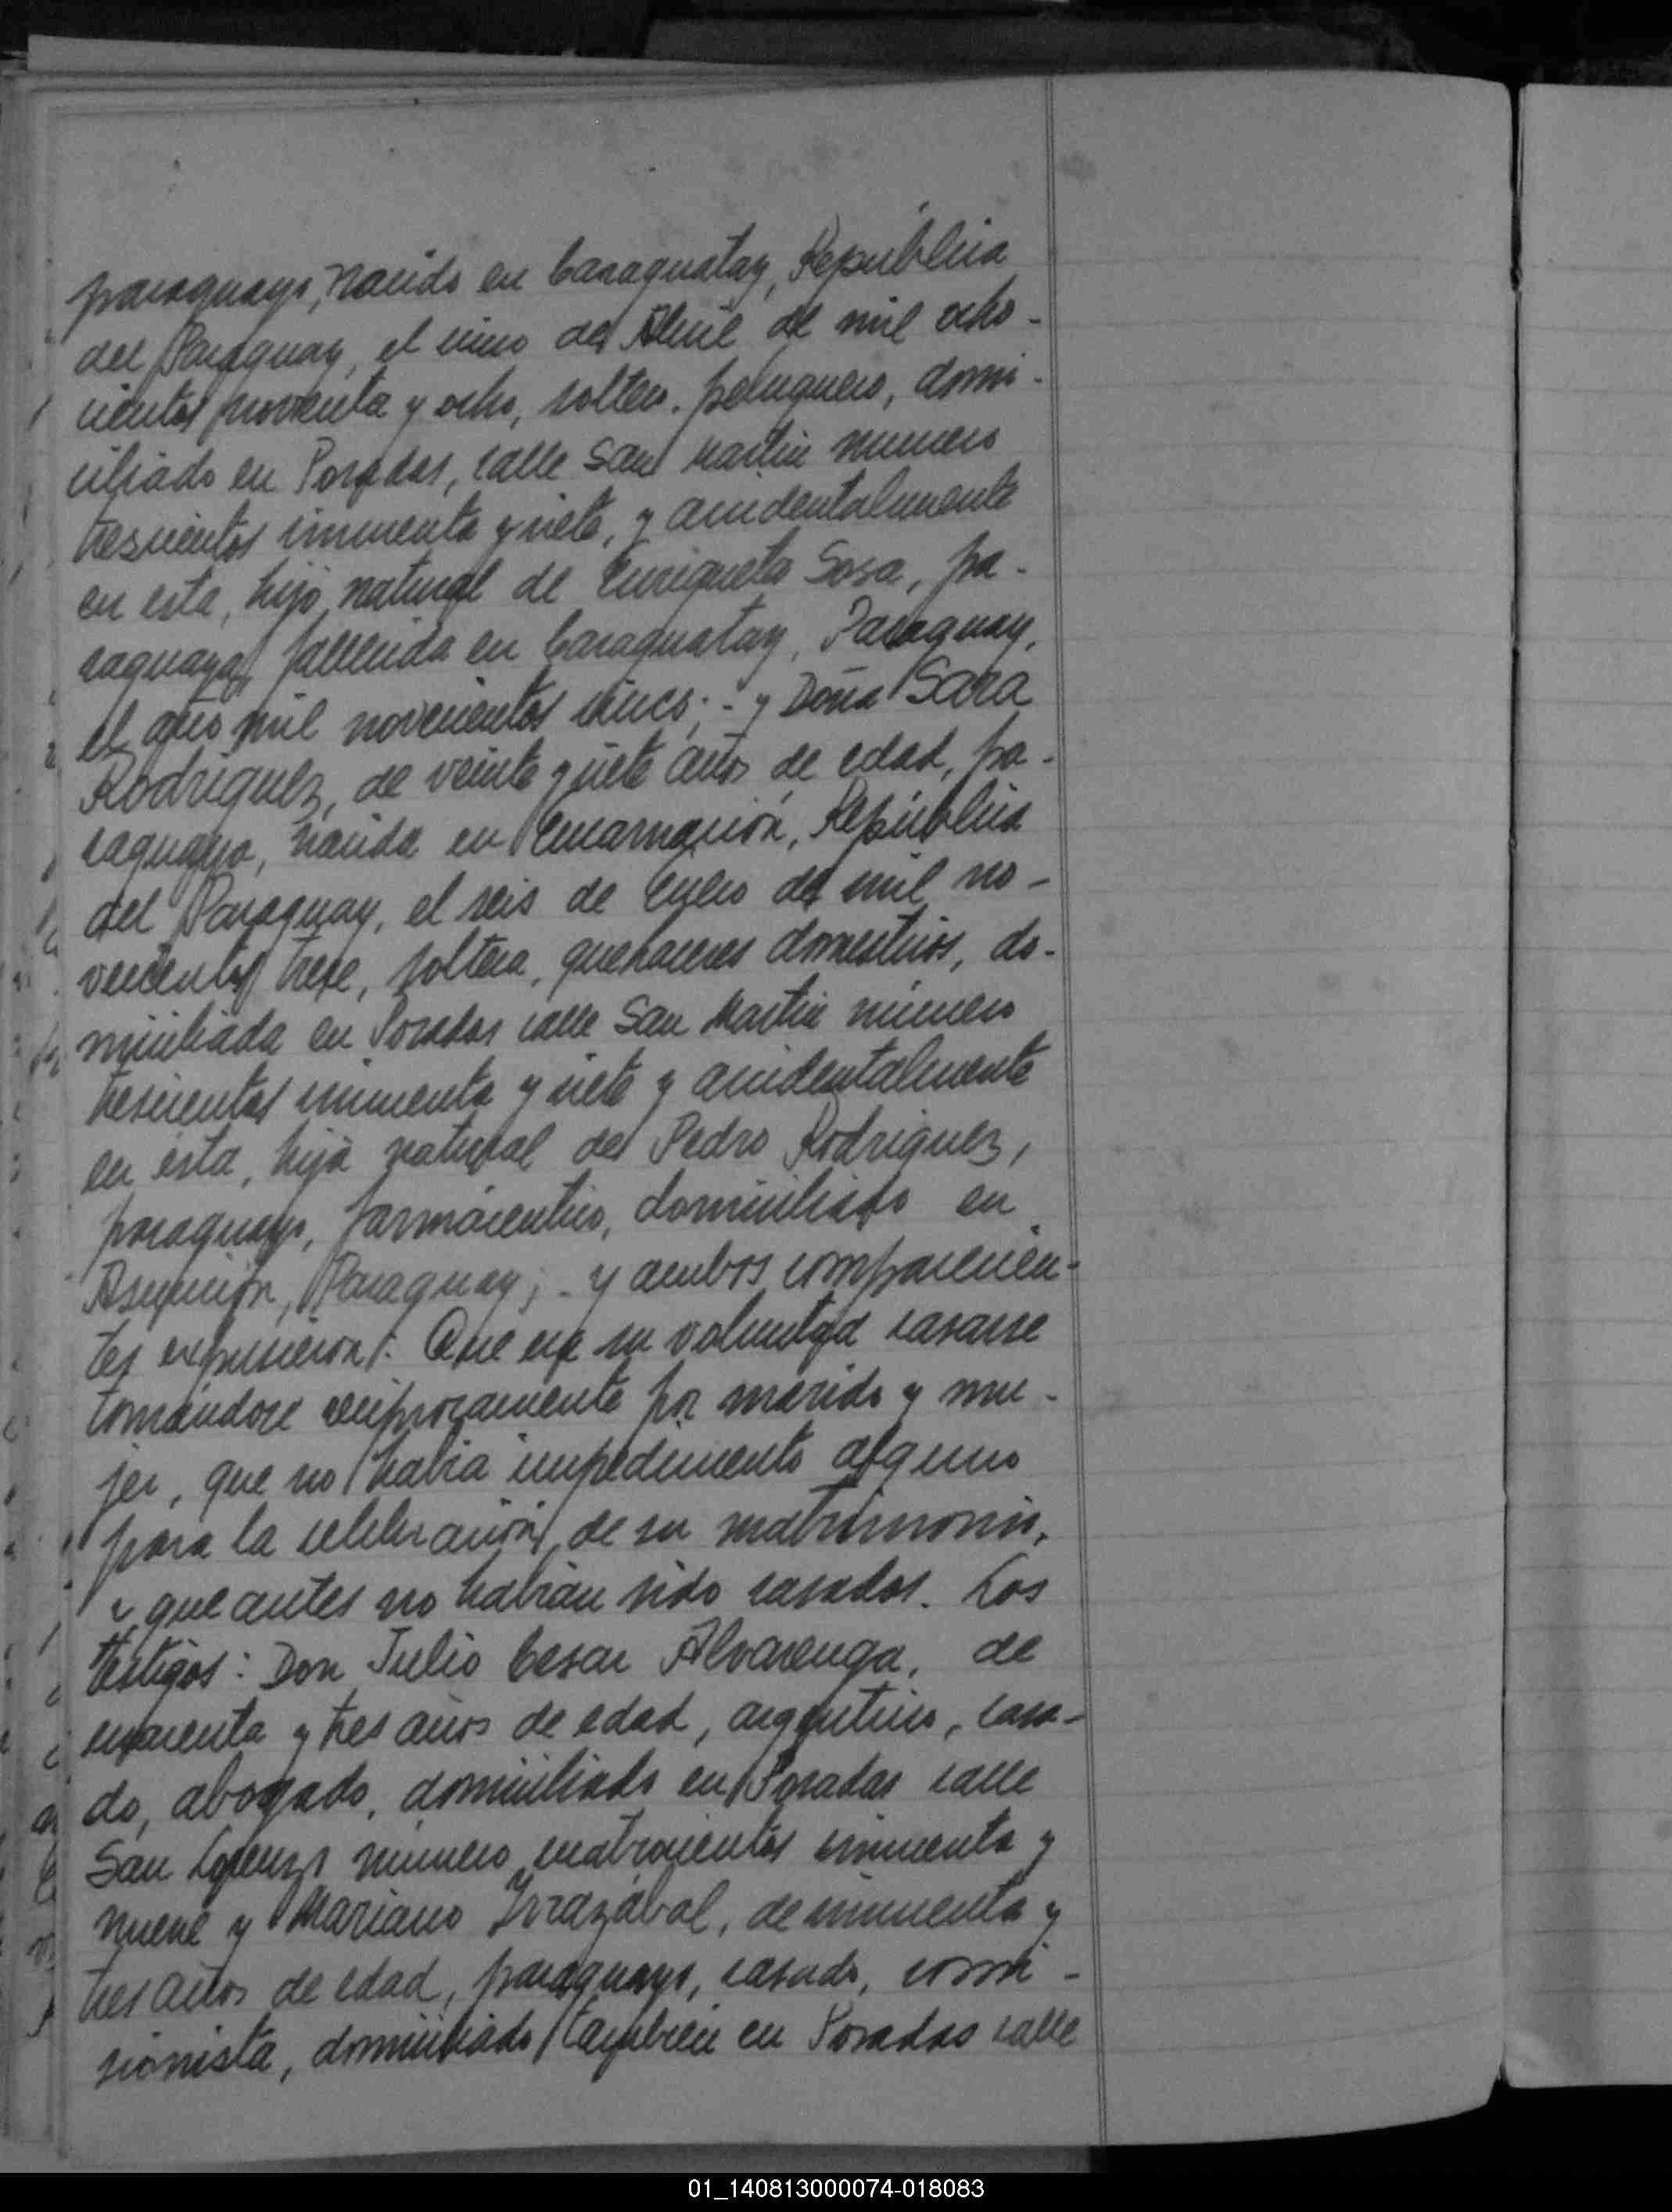 paraguayo, nacido en Caraguatay, República
del Paraguay, el cinco de Abril de mil ocho-
cientos noventa y ocho, soltero, peluquero, domi-
ciliado en Posadas, calle San Martin numero
trescientos cincuenta y siete, y accidentalmente
en esta, hijo natural de Enriqueta Sosa, pa-
raguaya, fallecida en Caraguatay, Paraguay,
el año mil novecientos cinco; - y Doña Sara
Rodriguez, de veinte y siete años de edad, pa-
raguaya, nacida en Encarnación, República
del Paraguay, el seis de Enero de mil no-
vecientos trece, soltera, quehaceres domesticos, do-
miciliada en Posadas calle San Martin número
trescientos cincuenta y siete y accidentalmente
en ésta, hija natural de Pedro Rodriguez,
paraguayo, farmaceutico, domiciliado en
Asunción, Paraguay; - y ambos comparecien-
tes expusieron: Que era su voluntad casarse
tomándose reciprocamente por marido y mu-
jer, que no habia impedimento alguno
para la celebración de su matrimonio,
y que antes no habian sido casados. Los
testigos: Don Julio Cesar Alvarenga, de
cuarenta y tres años de edad, argentino, casa-
do, abogado, domiciliado en Posadas calle
San Lorenzo número cuatrocientos cincuenta y
nueve y Mariano Irrazábal, de cincuenta y
tres años de edad, paraguayo, casado, comi-
sionista, domiciliado tambien en Posadas calle
01_140813000074-018083